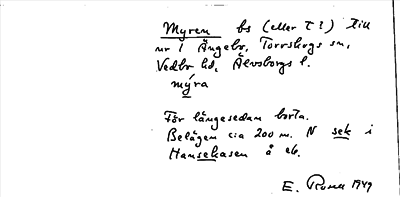 Myren bs (eller T!) Till
nr 1 Ängebo, Torrskogs sn,
Vedbo hd, Älvsborgs l.
mýra
För längesedan borta.
Belägen c:a 200 m. N sek i
Hansekasen å eb.
E. 1949